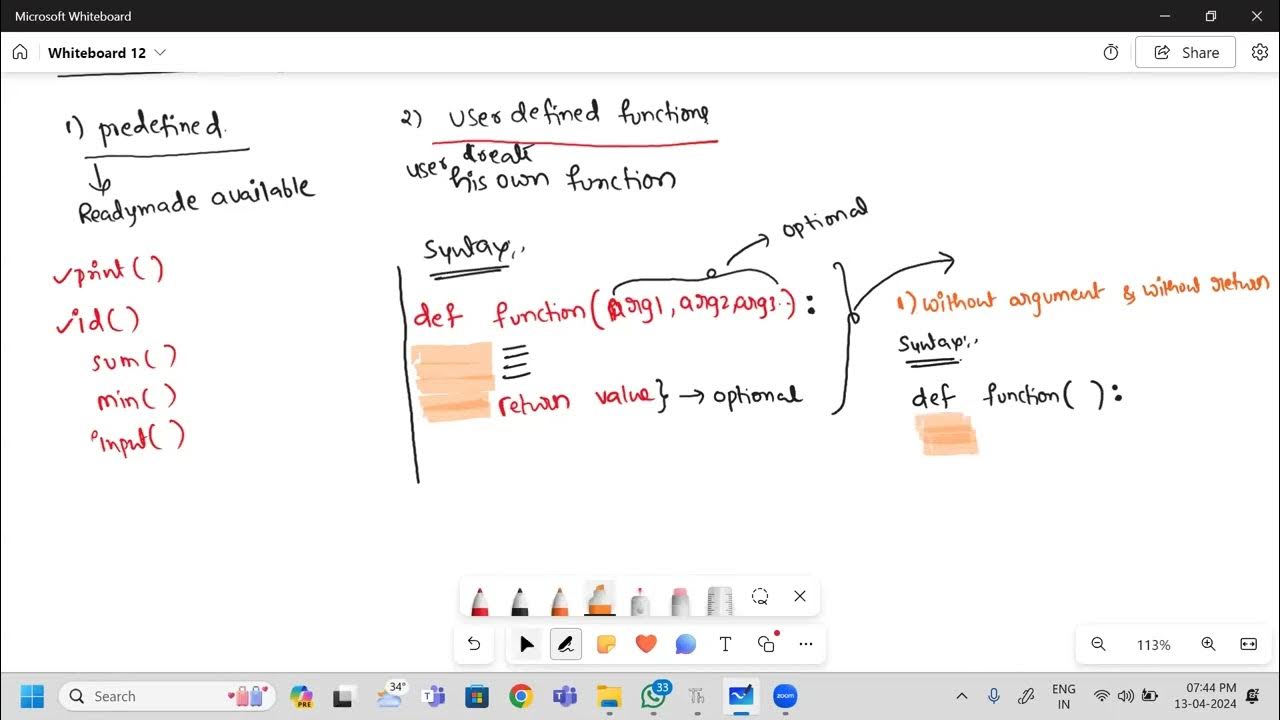 Microsoft Whiteboard
Whiteboard 12
Share
1) predefined.
Readymade available
print( )
id( )
sum( )
min( )
input( )
2) User defined functions
user create
his own function
Syntax:
optional
def function(arg1, arg2, arg3..):
return value} → optional
1) without argument & without return
Syntax:
def function( ):
T
113%
Search
PRE
34°
33
zoom
ENG
IN
07:44 PM
13-04-2024